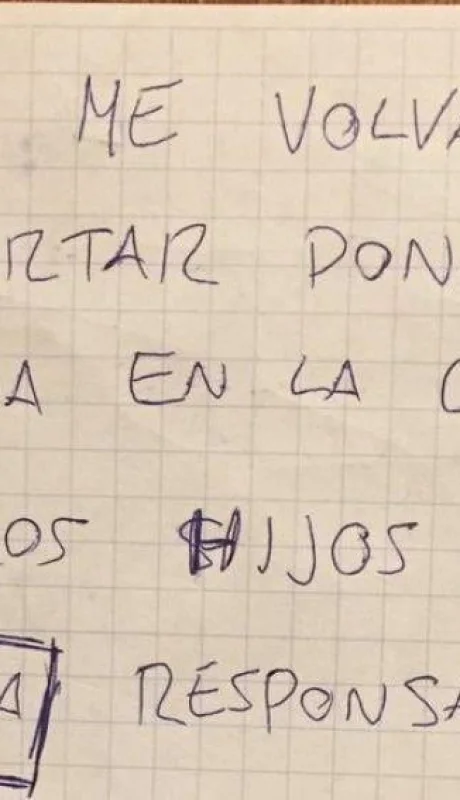 ME VOLVA
RTAR PON
A EN LA C
OS HIJOS
A RESPONSA